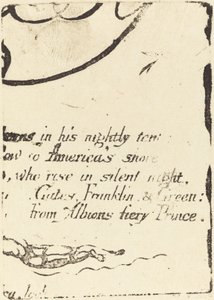 in his nightly ten
to America's shore
, who rose in silent night.
Gates, Franklin, & Green:
from Albions fiery Prince.